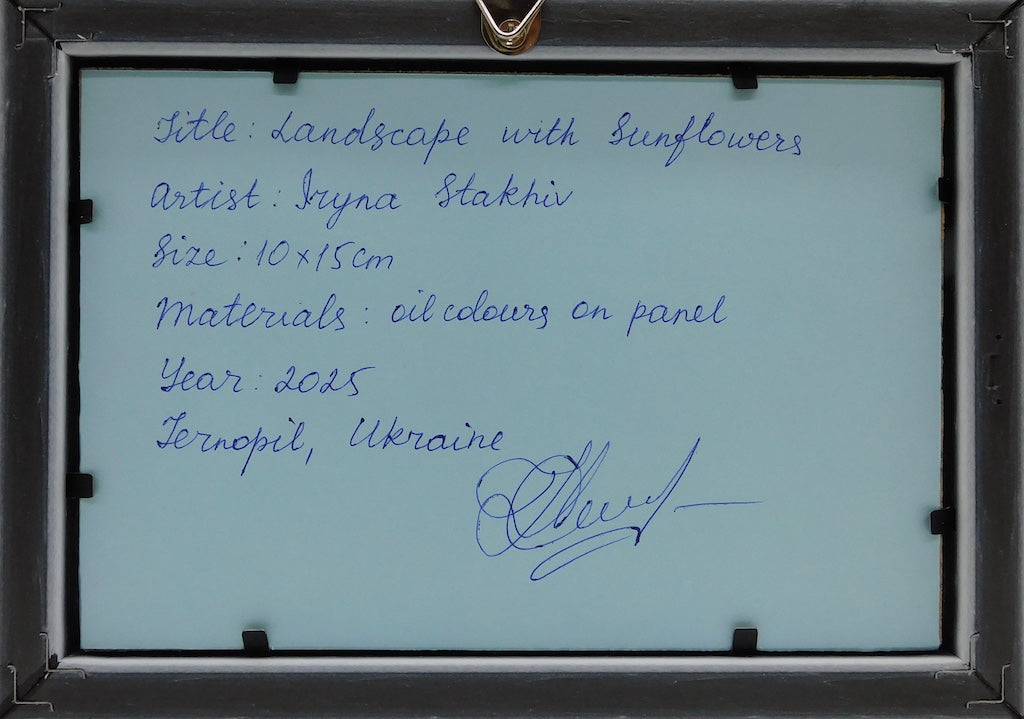 Title: Landscape with Sunflowers
Artist: Iryna Stakhiv
Size: 10x15cm
Materials: oil colours on panel
Year: 2025
Ternopil, Ukraine